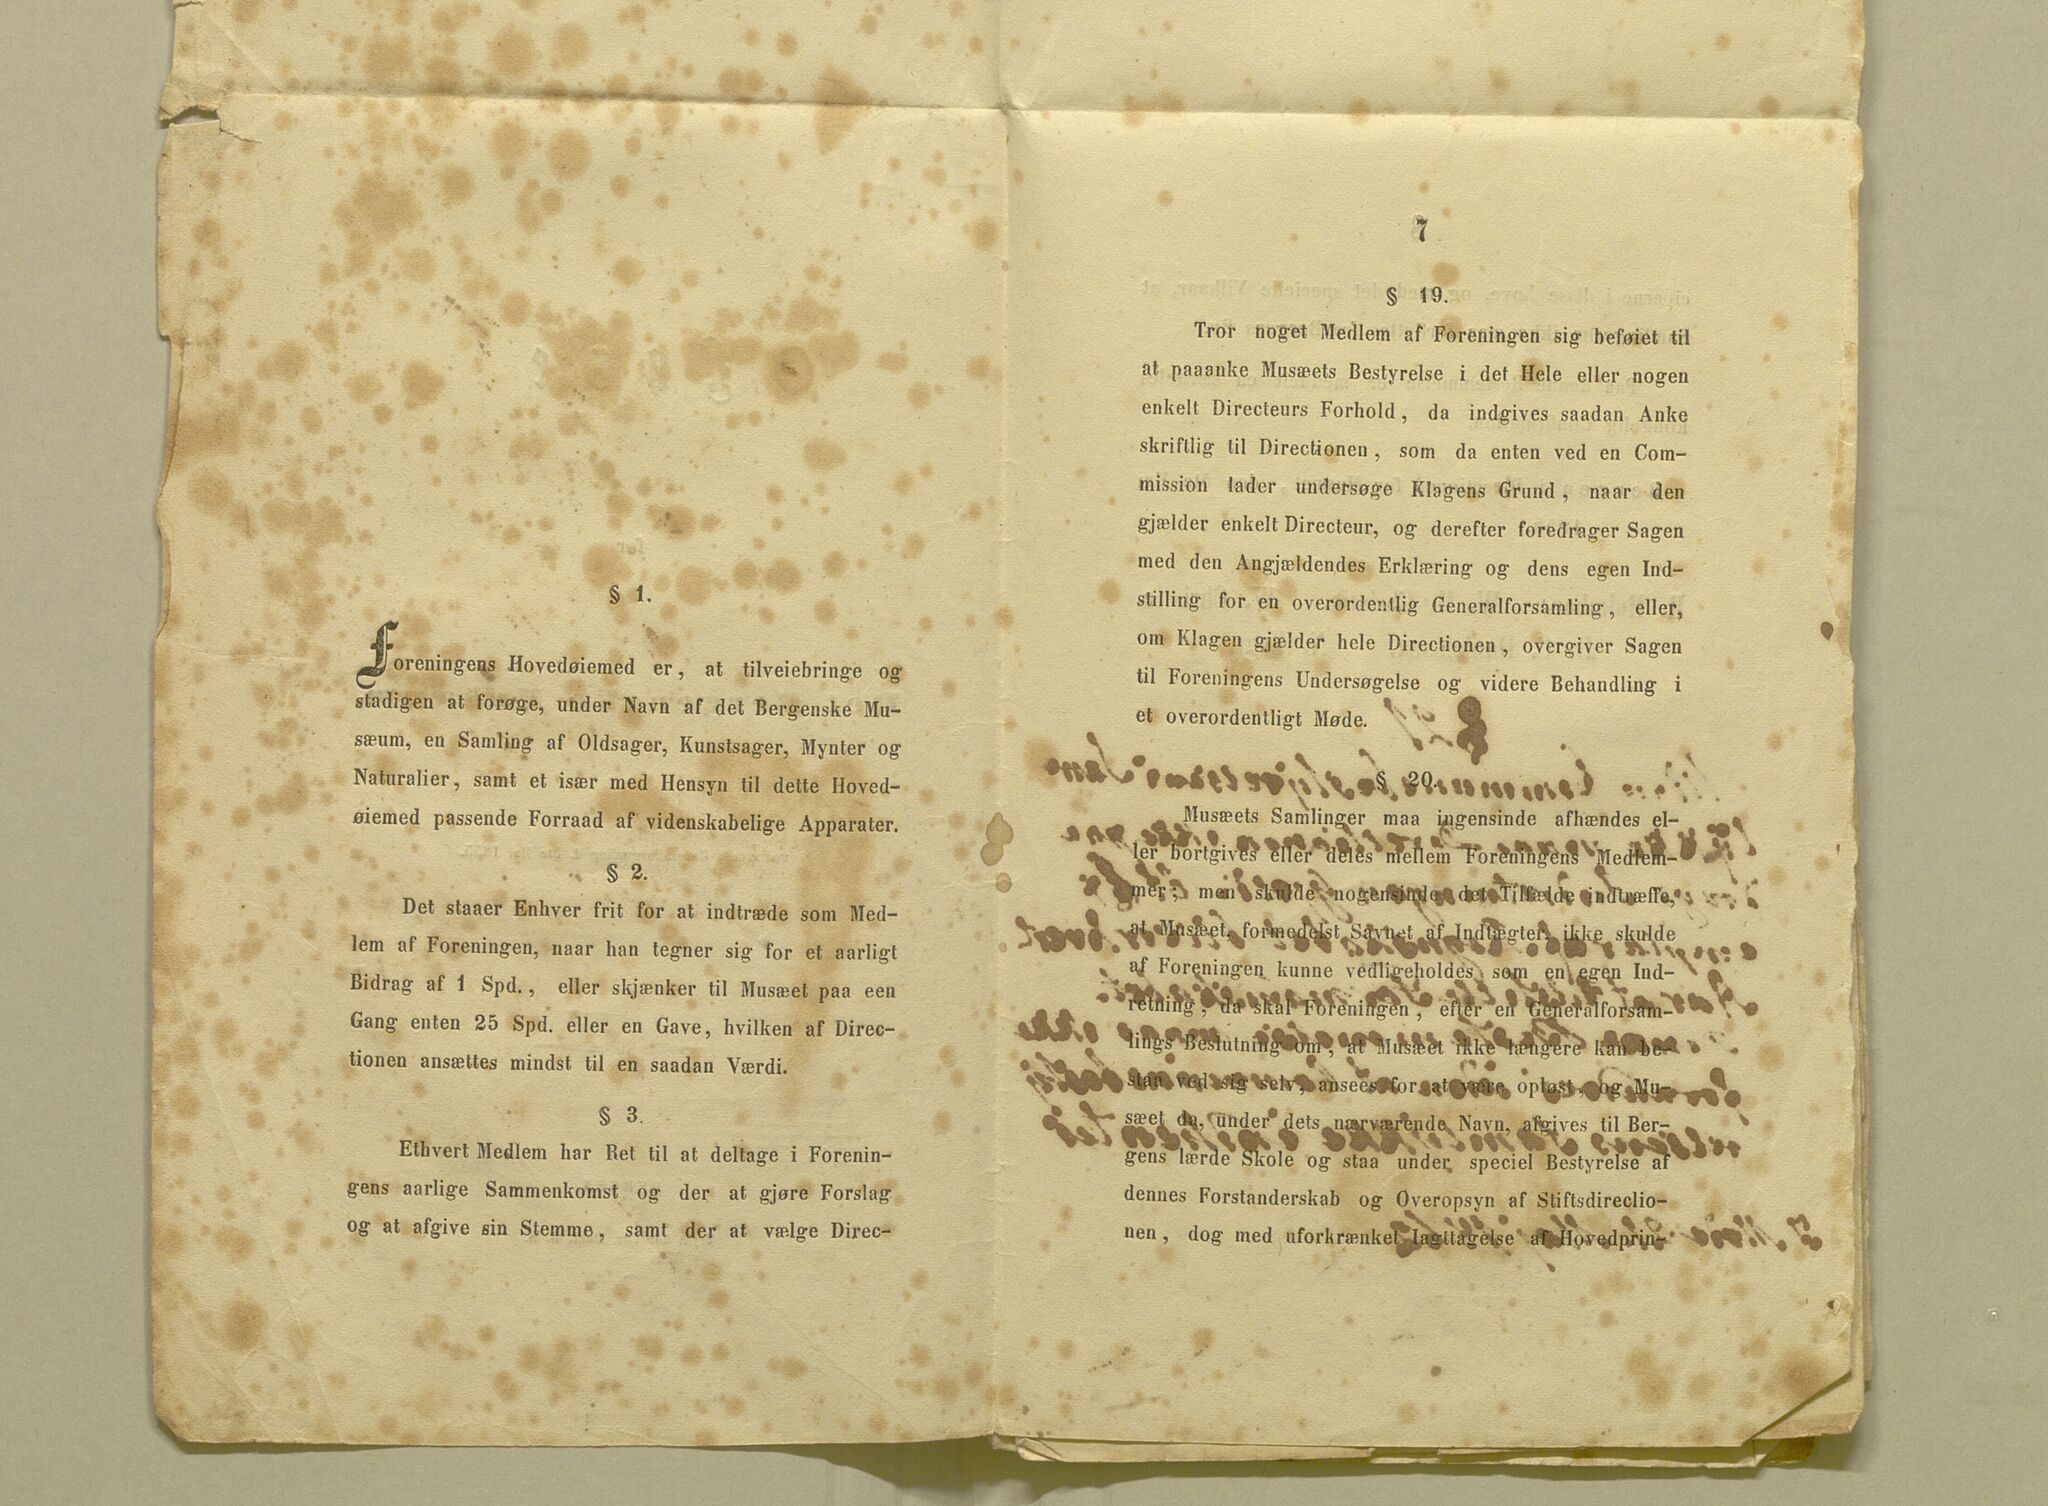 § 1.
Foreningens Hovedøiemed er, at tilveiebringe og
stadigen at forøge, under Navn af det Bergenske Mu-
sæum, en Samling af Oldsager, Kunstsager, Mynter og
Naturalier, samt et især med Hensyn til dette Hoved-
øiemed passende Forraad af videnskabelige Apparater.
§ 2.
Det staaer Enhver frit for at indtræde som Med-
lem af Foreningen, naar han tegner sig for et aarligt
Bidrag af 1 Spd., eller skjænker til Musæet paa een
Gang enten 25 Spd. eller en Gave, hvilken af Direc-
tionen ansættes mindst til en saadan Værdi.
§ 3.
Ethvert Medlem har Ret til at deltage i Forenin-
gens aarlige Sammenkomst og der at gjøre Forslag
og at afgive sin Stemme, samt der at vælge Direc-
7
§ 19.
Tror noget Medlem af Foreningen sig beføiet til
at paaanke Musæets Bestyrelse i det Hele eller nogen
enkelt Directeurs Forhold, da indgives saadan Anke
skriftlig til Directionen, som da enten ved en Com-
mission lader undersøge Klagens Grund, naar den
gjælder enkelt Directeur, og derefter foredrager Sagen
med den Angjældendes Erklæring og dens egen Ind-
stilling for en overordentlig Generalforsamling, eller,
om Klagen gjælder hele Directionen, overgiver Sagen
til Foreningens Undersøgelse og videre Behandling i
et overordentligt Møde.
§ 20.
Musæets Samlinger maa ingensinde afhændes el-
ler bortgives eller deles mellem Foreningens Medlem-
mer; men skulde nogensinde det Tilfælde indtræffe,
at Musæet, formedelst Savnet af Indtægter, ikke skulde
af Foreningen kunne vedligeholdes som en egen Ind-
retning, da skal Foreningen, efter en Generalforsam-
lings Beslutning om, at Musæet ikke længere kan be-
staa ved sig selv, ansees for at være opløst, og Mu-
sæet da, under dets nærværende Navn, afgives til Ber-
gens lærde Skole og staa under speciel Bestyrelse af
dennes Forstanderskab og Overopsyn af Stiftsdirectio-
nen, dog med uforkrænket Iagttagelse af Hovedprin-